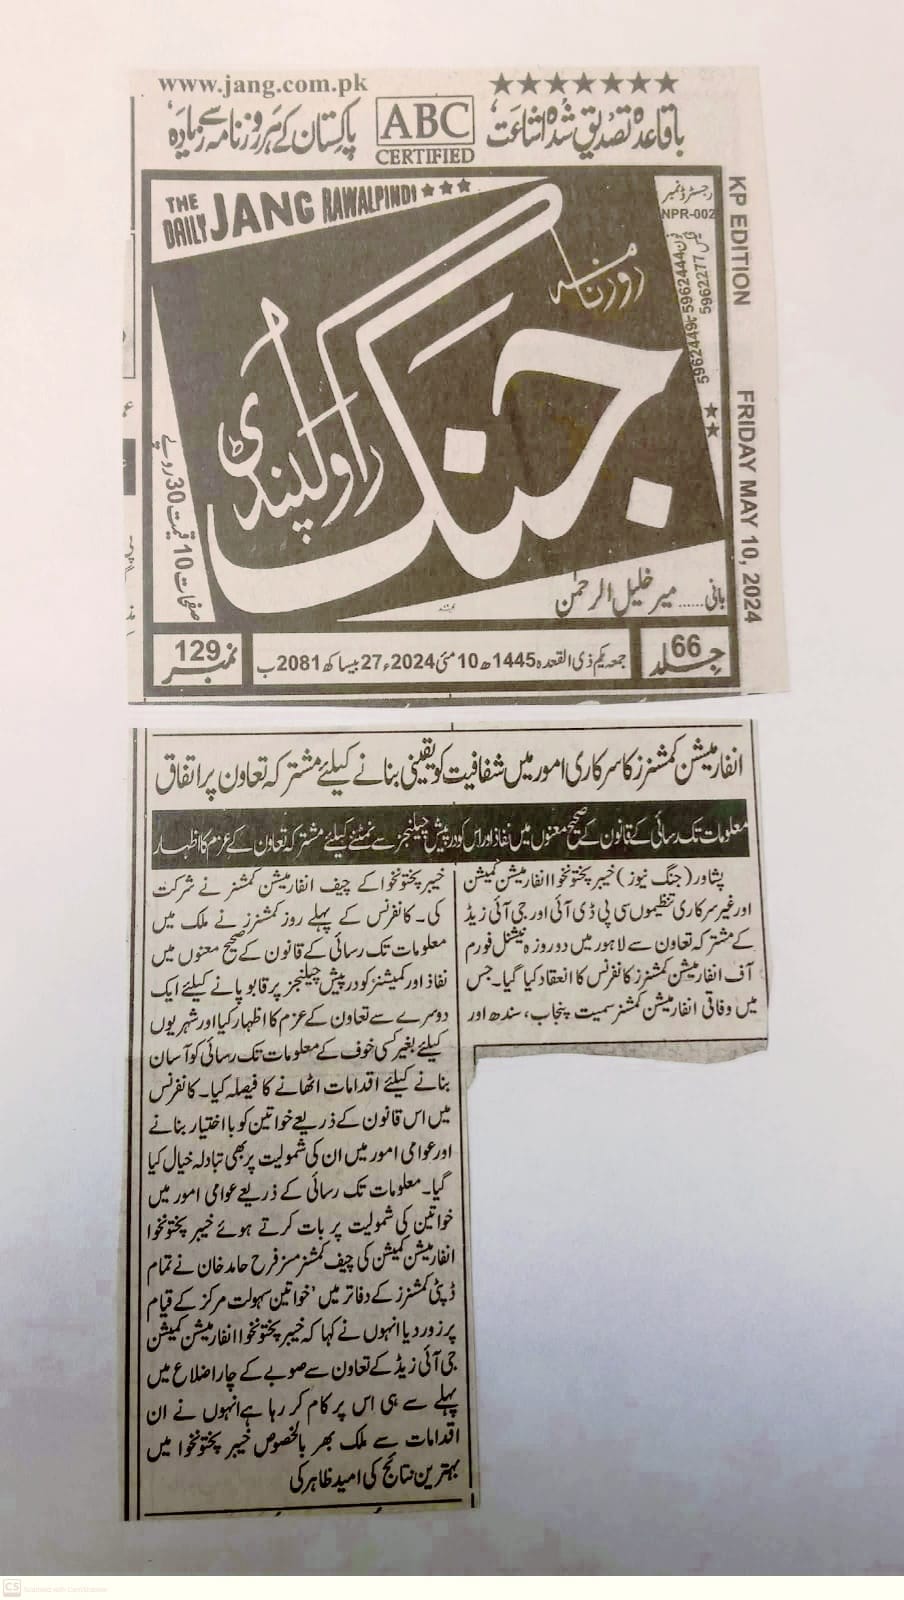 www.jang.com.pk
★★★★★★★
باقاعدہ تصدیق شدہ اشاعت،
ABC
CERTIFIED
پاکستان کے ہر روزنامہ سے زیادہ
THE DAILY JANG RAWALPINDI ★★★
رجسٹرڈ نمبر
NPR-002
KP EDITION FRIDAY MAY 10, 2024
روزنامہ
جنگ
راولپنڈی
صفحات 10 قیمت 30 روپے
بانی...... میر خلیل الرحمٰن
جلد 66
جمعہ یکم ذی القعدہ 1445ھ 10 مئی 2024ء 27 بیساکھ 2081 ب
نمبر 129
انفارمیشن کمشنرز کا سرکاری امور میں شفافیت کو یقینی بنانے کیلئے مشترکہ تعاون پر اتفاق
معلومات تک رسائی کے قانون کے صحیح معنوں میں نفاذ اور اس کو درپیش چیلنجز سے نمٹنے کیلئے مشترکہ تعاون کے عزم کا اظہار
پشاور (جنگ نیوز) خیبر پختونخوا انفارمیشن کمیشن
اور غیر سرکاری تنظیموں سی پی ڈی آئی اور جی آئی زیڈ
کے مشترکہ تعاون سے لاہور میں دو روزہ نیشنل فورم
آف انفارمیشن کمشنرز کانفرنس کا انعقاد کیا گیا۔ جس
میں وفاقی انفارمیشن کمشنر سمیت پنجاب، سندھ اور
خیبر پختونخوا کے چیف انفارمیشن کمشنر نے شرکت
کی۔ کانفرنس کے پہلے روز کمشنرز نے ملک میں
معلومات تک رسائی کے قانون کے صحیح معنوں میں
نفاذ اور کمیشنز کو درپیش چیلنجز پر قابو پانے کیلئے ایک
دوسرے سے تعاون کے عزم کا اظہار کیا اور شہریوں
کیلئے بغیر کسی خوف کے معلومات تک رسائی کو آسان
بنانے کیلئے اقدامات اٹھانے کا فیصلہ کیا۔ کانفرنس
میں اس قانون کے ذریعے خواتین کو بااختیار بنانے
اور عوامی امور میں ان کی شمولیت پر بھی تبادلہ خیال کیا
گیا۔ معلومات تک رسائی کے ذریعے عوامی امور میں
خواتین کی شمولیت پر بات کرتے ہوئے خیبر پختونخوا
انفارمیشن کمیشن کی چیف کمشنر مسز فرح حامد خان نے تمام
ڈپٹی کمشنرز کے دفاتر میں 'خواتین سہولت مرکز کے قیام
پر زور دیا انہوں نے کہا کہ خیبر پختونخوا انفارمیشن کمیشن
جی آئی زیڈ کے تعاون سے صوبے کے چار اضلاع میں
پہلے سے ہی اس پر کام کر رہا ہے انہوں نے ان
اقدامات سے ملک بھر بالخصوص خیبر پختونخوا میں
بہترین نتائج کی امید ظاہر کی
CS Scanned with CamScanner